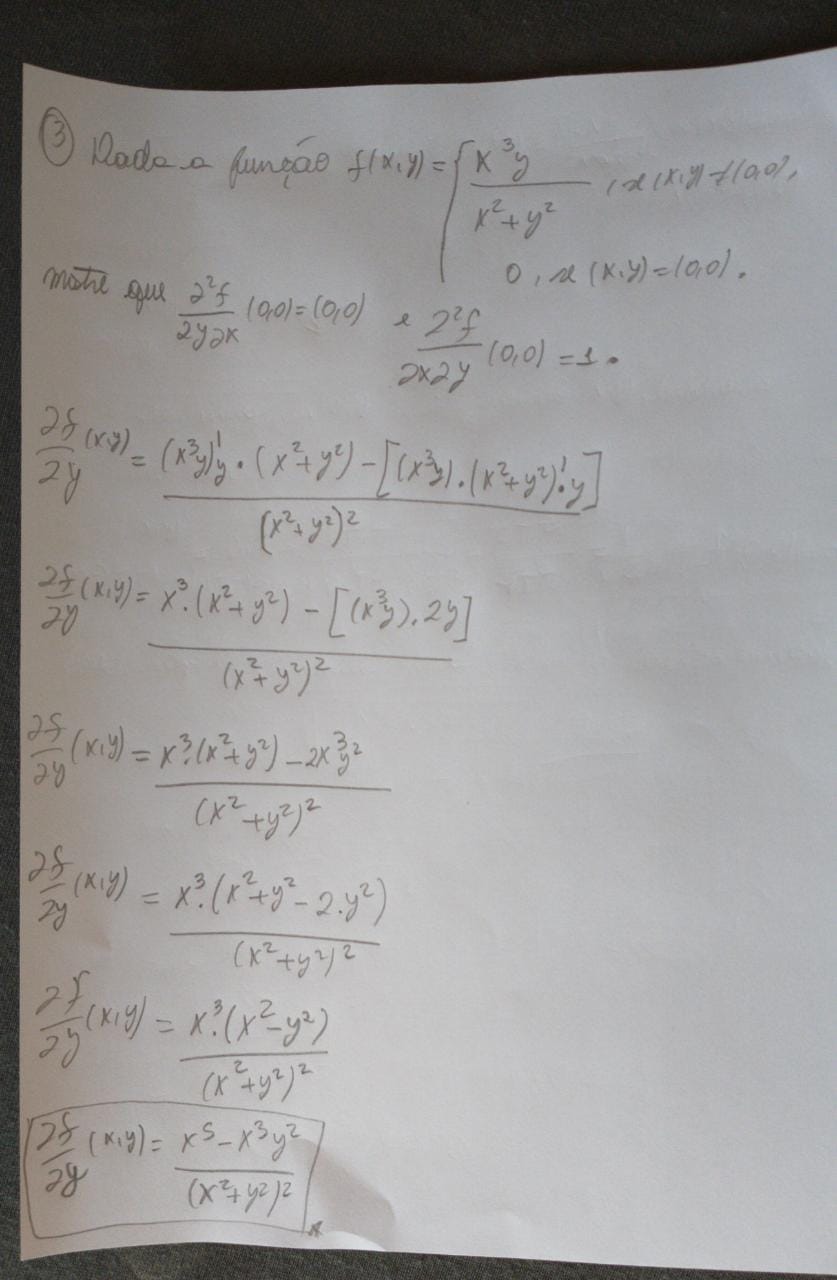 ③ Dada a função f(x,y) = { x³y / x²+y² , se (x,y) ≠ (0,0),
0 , se (x,y) = (0,0).
mostre que ∂²f/∂y∂x (0,0) = (0,0) e ∂²f/∂x∂y (0,0) = 1.
∂f/∂y (x,y) = (x³y)'y · (x²+y²) - [(x³y) · (x²+y²)'·y] / (x²+y²)²
∂f/∂y (x,y) = x³·(x²+y²) - [(x³y).2y] / (x²+y²)²
∂f/∂y (x,y) = x³·(x²+y²) - 2x³y² / (x²+y²)²
∂f/∂y (x,y) = x³·(x²+y²-2.y²) / (x²+y²)²
∂f/∂y (x,y) = x³·(x²-y²) / (x²+y²)²
∂f/∂y (x,y) = x⁵ - x³y² / (x²+y²)²